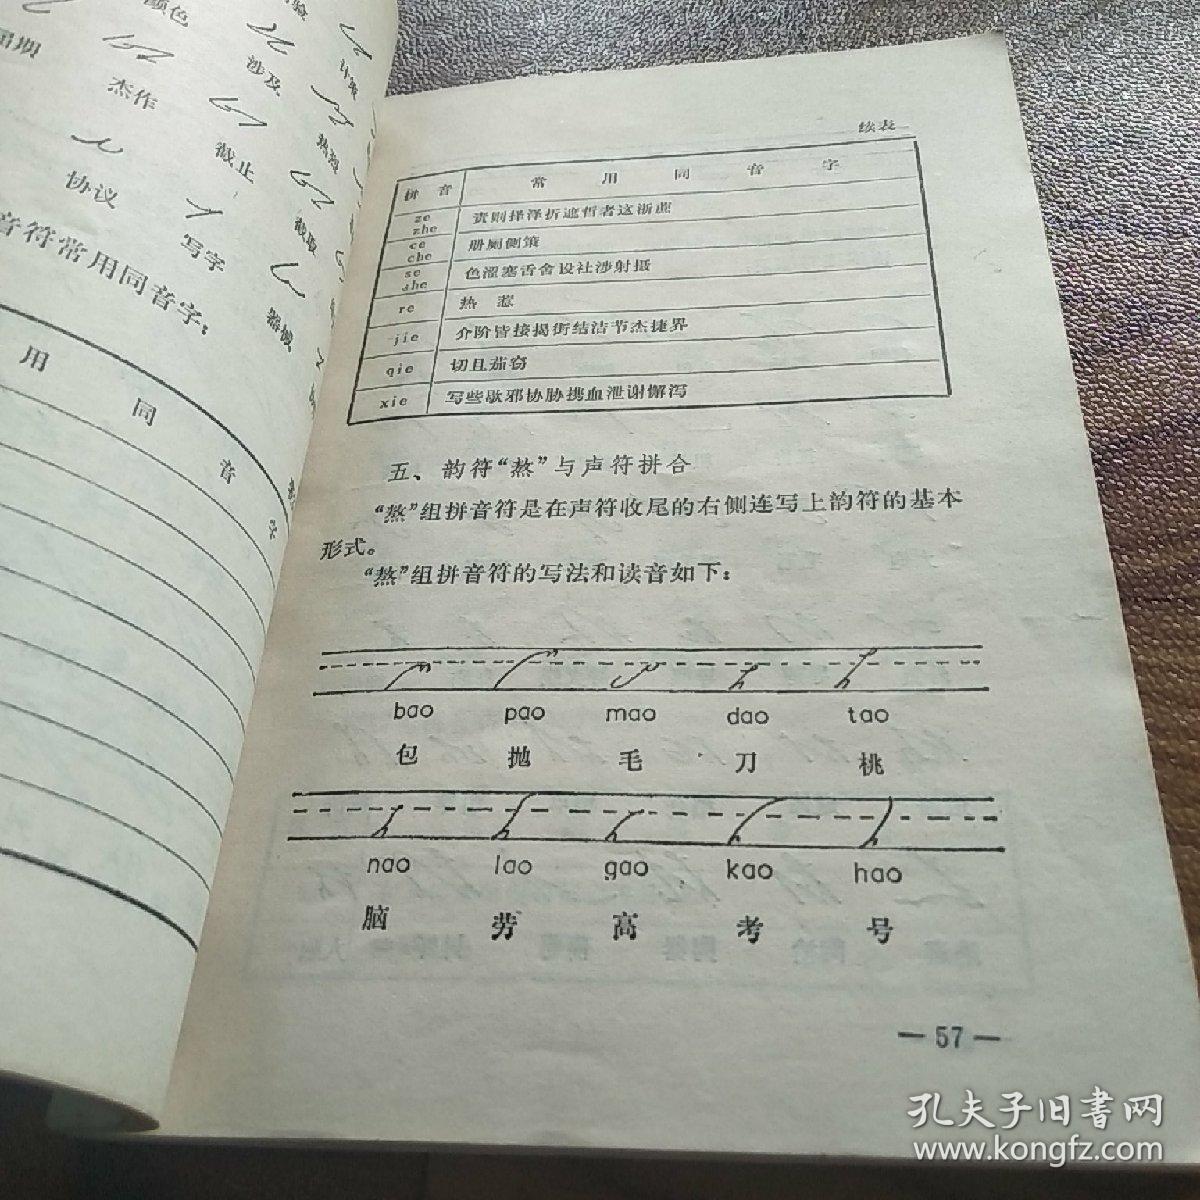 颜色
涉及
计
杰作
截止
热
协议
写字
截取
器械
音符常用同音字：
用
同
音
字
续表
拼 音 常 用 同 音 字
ze
zhe 责则择泽折遮哲者这浙蔗
ce
che 册厕侧策
se
she 色涩塞舌舍设社涉射摄
re 热 惹
jie 介阶皆接揭街结洁节杰捷界
qie 切且茄窃
xie 写些歇邪协胁携血泄谢懈泻
五、韵符“熬”与声符拼合
“熬”组拼音符是在声符收尾的右侧连写上韵符的基本
形式。
“熬”组拼音符的写法和读音如下：
bao pao mao dao tao
包 抛 毛 刀 桃
nao lao gao kao hao
脑 劳 高 考 号
— 57 —
孔夫子旧书网
www.kongfz.com